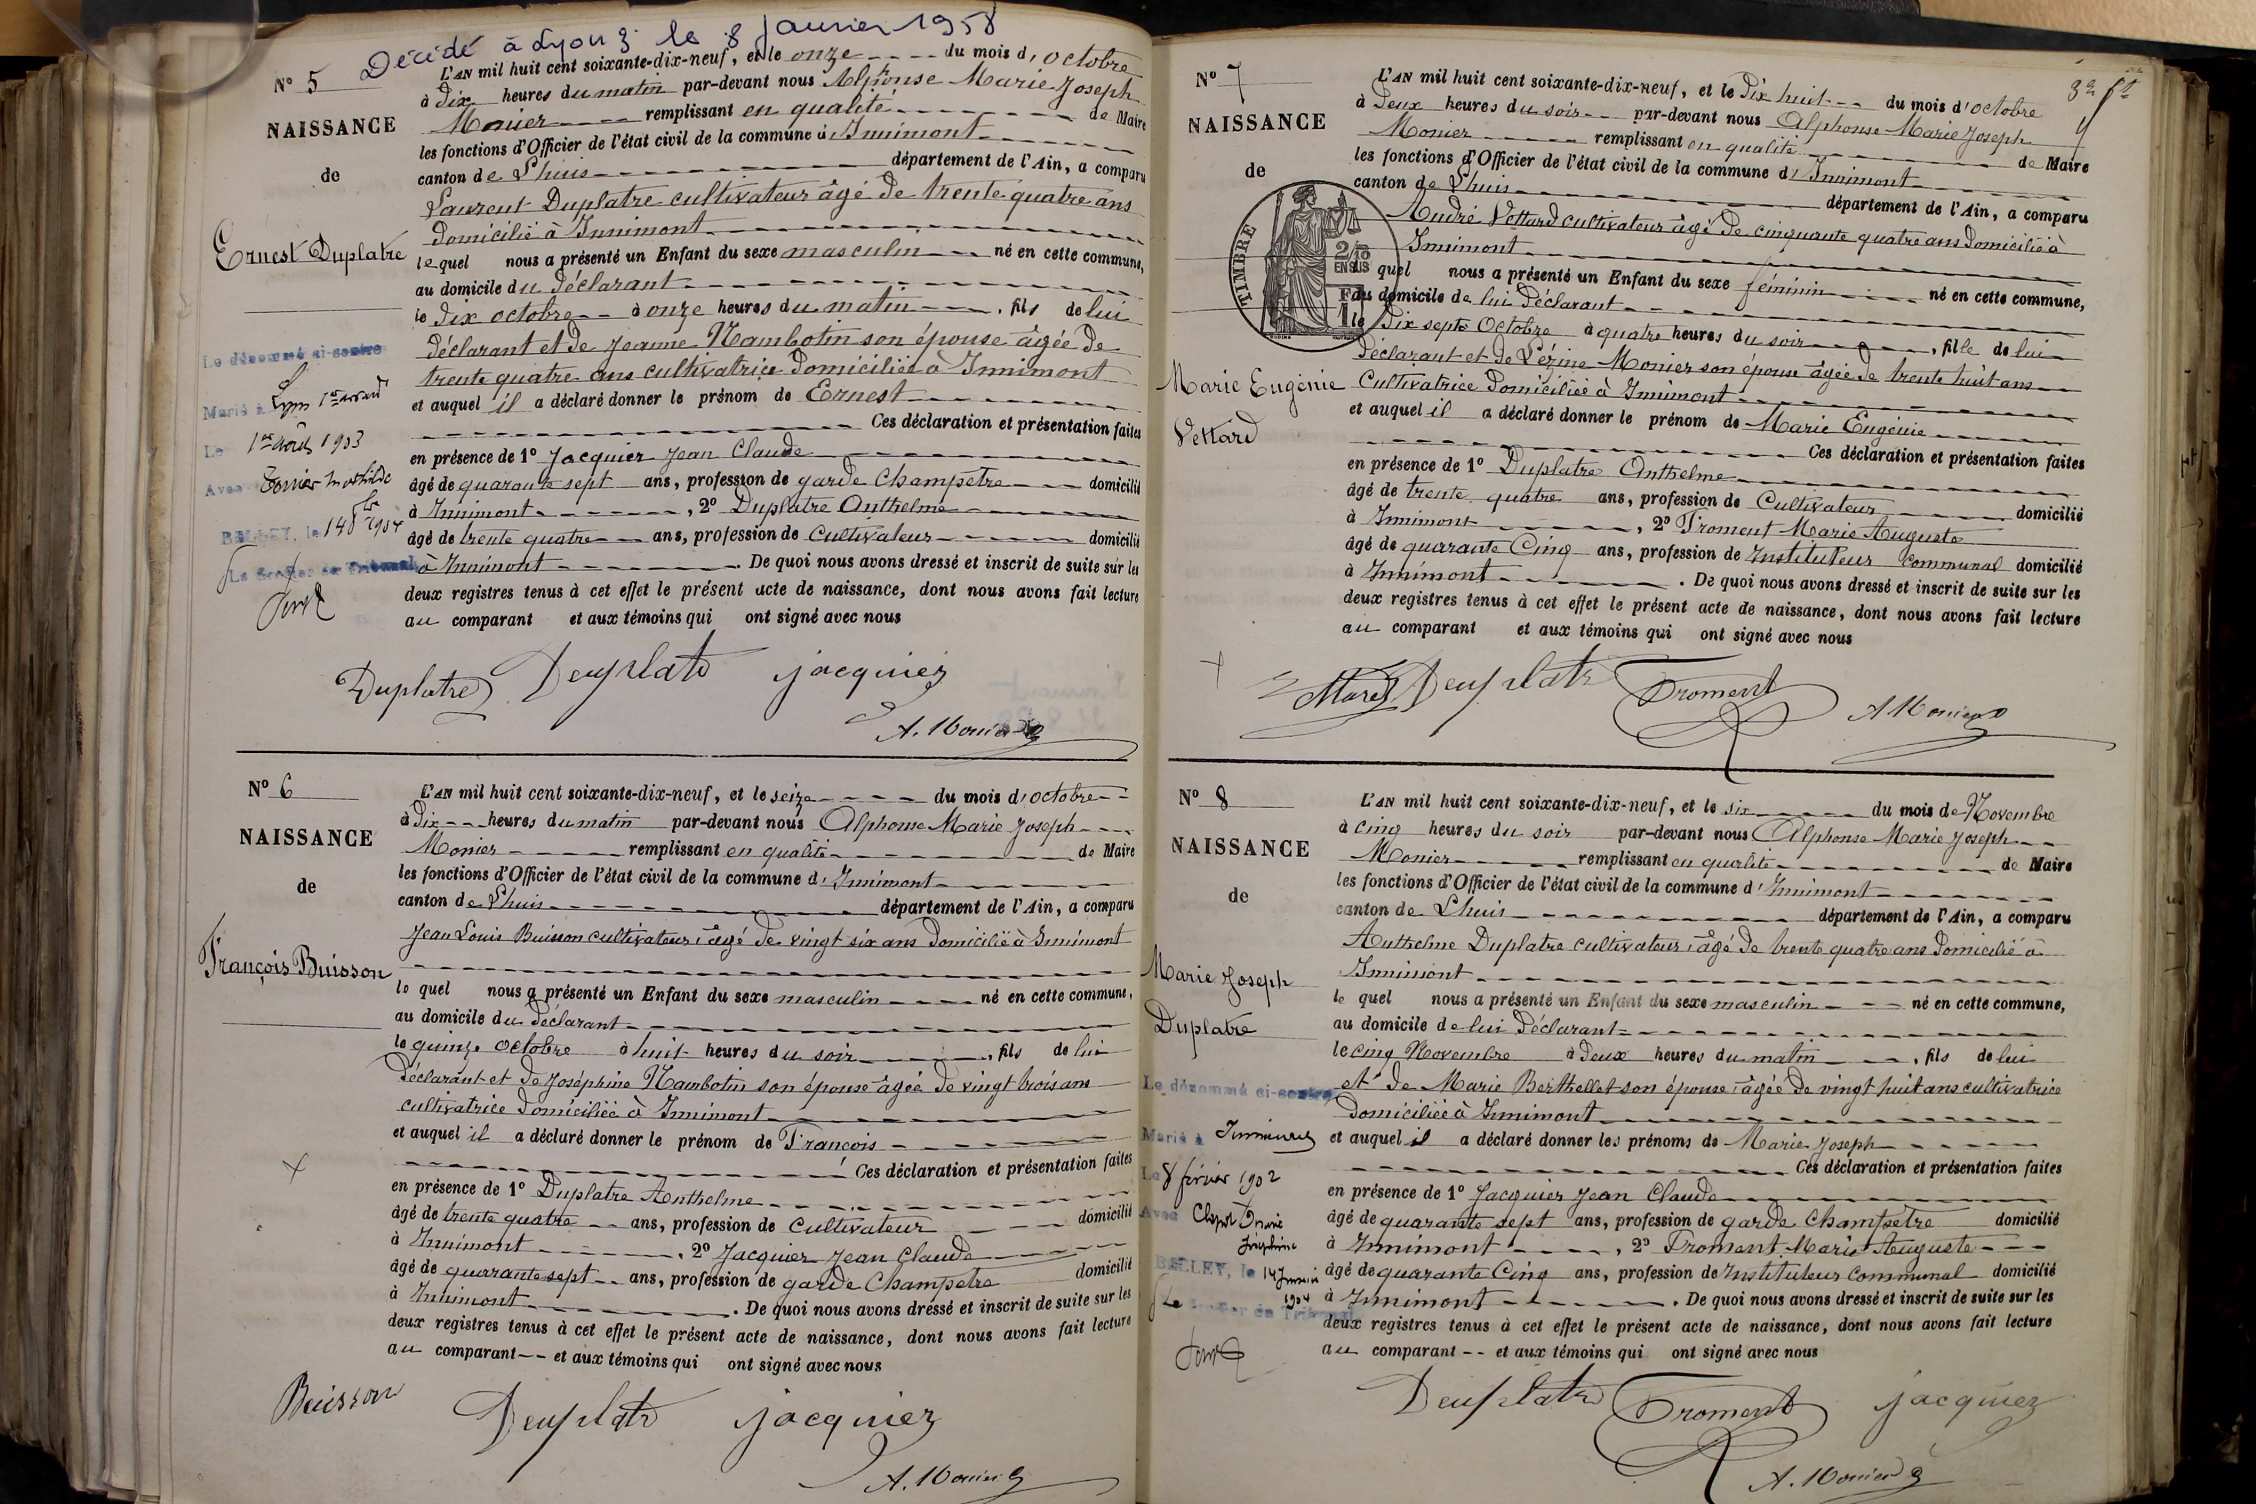 Décédé à Lyon 3 le 8 janvier 1958
N° 5
NAISSANCE
de
Ernest Duplatre
Le dénommé ci-contre
Marié à Lyon 1er arrond
Le 1er août 1903
Avec
BELLEY, le 14 1904
Le Greffier du Tribunal
L'AN mil huit cent soixante-dix-neuf, et le onze du mois d'octobre
à Dix heures du matin par-devant nous Alphonse Marie Joseph
Monier remplissant en qualité de Maire
les fonctions d'Officier de l'état civil de la commune d'Innimont
canton de Lhuis département de l'Ain, a comparu
Laurent Duplatre cultivateur âgé de trente quatre ans
Domicilié à Innimont
lequel nous a présenté un Enfant du sexe masculin né en cette commune,
au domicile du déclarant
le dix octobre à onze heures du matin, fils de lui
déclarant et de Jeanne Nambotin son épouse âgée de
trente quatre ans cultivatrice domiciliée à Innimont
et auquel il a déclaré donner le prénom de Ernest
Ces déclaration et présentation faites
en présence de 1° Jacquier Jean Claude
âgé de quarante sept ans, profession de garde champêtre domicilié
à Innimont, 2° Duplatre Anthelme
âgé de trente quatre ans, profession de Cultivateur domicilié
à Innimont. De quoi nous avons dressé et inscrit de suite sur les
deux registres tenus à cet effet le présent acte de naissance, dont nous avons fait lecture
au comparant et aux témoins qui ont signé avec nous
Duplatre Duplatre Jacquier
A. Monier
N° 6
NAISSANCE
de
François Buisson
L'AN mil huit cent soixante-dix-neuf, et le seize du mois d'octobre
à Dix heures du matin par-devant nous Alphonse Marie Joseph
Monier remplissant en qualité de Maire
les fonctions d'Officier de l'état civil de la commune d'Innimont
canton de Lhuis département de l'Ain, a comparu
Jean Louis Buisson cultivateur, âgé de vingt six ans domicilié à Innimont
le quel nous a présenté un Enfant du sexe masculin né en cette commune,
au domicile du déclarant
le quinze octobre à huit heures du soir, fils de lui
déclarant et de Joséphine Nambotin son épouse âgée de vingt trois ans
cultivatrice domiciliée à Innimont
et auquel il a déclaré donner le prénom de François
Ces déclaration et présentation faites
en présence de 1° Duplatre Anthelme
âgé de trente quatre ans, profession de Cultivateur domicilié
à Innimont, 2° Jacquier Jean Claude
âgé de quarante sept ans, profession de garde Champêtre domicilié
à Innimont. De quoi nous avons dressé et inscrit de suite sur les
deux registres tenus à cet effet le présent acte de naissance, dont nous avons fait lecture
au comparant et aux témoins qui ont signé avec nous
Buisson Duplatre Jacquier
A. Monier
N° 7
NAISSANCE
de
TIMBRE
2/10
EN SUS
Marie Eugénie
Vettard
L'AN mil huit cent soixante-dix-neuf, et le Dix huit du mois d'octobre
à Deux heures du soir par-devant nous Alphonse Marie Joseph
Monier remplissant en qualité de Maire
les fonctions d'Officier de l'état civil de la commune d'Innimont
canton de Lhuis département de l'Ain, a comparu
André Vettard cultivateur âgé de cinquante quatre ans domicilié à
Innimont
quel nous a présenté un Enfant du sexe féminin né en cette commune,
au domicile de lui déclarant
le Dix sept Octobre à quatre heures du soir, fille de lui
déclarant et de Lézine Monier son épouse âgée de trente huit ans
Cultivatrice domiciliée à Innimont
et auquel il a déclaré donner le prénom de Marie Eugénie
Ces déclaration et présentation faites
en présence de 1° Duplatre Anthelme
âgé de trente quatre ans, profession de Cultivateur domicilié
à Innimont, 2° Froment Marie Auguste
âgé de quarante Cinq ans, profession de Instituteur communal domicilié
à Innimont. De quoi nous avons dressé et inscrit de suite sur les
deux registres tenus à cet effet le présent acte de naissance, dont nous avons fait lecture
au comparant et aux témoins qui ont signé avec nous
Duplatre Froment A. Monier
N° 8
NAISSANCE
de
Marie Joseph
Duplatre
Le dénommé ci-contre
Marié à
Le 8 février 1902
Avec
Joséphine
BELLEY, le 14 1904
Le Greffier du Tribunal
L'AN mil huit cent soixante-dix-neuf, et le six du mois de Novembre
à cinq heures du soir par-devant nous Alphonse Marie Joseph
Monier remplissant en qualité de Maire
les fonctions d'Officier de l'état civil de la commune d'Innimont
canton de Lhuis département de l'Ain, a comparu
Anthelme Duplatre cultivateur, âgé de trente quatre ans domicilié à
Innimont
le quel nous a présenté un Enfant du sexe masculin né en cette commune,
au domicile de lui déclarant
le cinq Novembre à deux heures du matin, fils de lui
et de Marie Berthellet son épouse, âgée de vingt huit ans cultivatrice
domiciliée à Innimont
et auquel il a déclaré donner les prénoms de Marie Joseph
Ces déclaration et présentation faites
en présence de 1° Jacquier Jean Claude
âgé de quarante sept ans, profession de garde Champêtre domicilié
à Innimont, 2° Froment Marie Auguste
âgé de quarante Cinq ans, profession de Instituteur communal domicilié
à Innimont. De quoi nous avons dressé et inscrit de suite sur les
deux registres tenus à cet effet le présent acte de naissance, dont nous avons fait lecture
au comparant et aux témoins qui ont signé avec nous
Duplatre Froment Jacquier
A. Monier